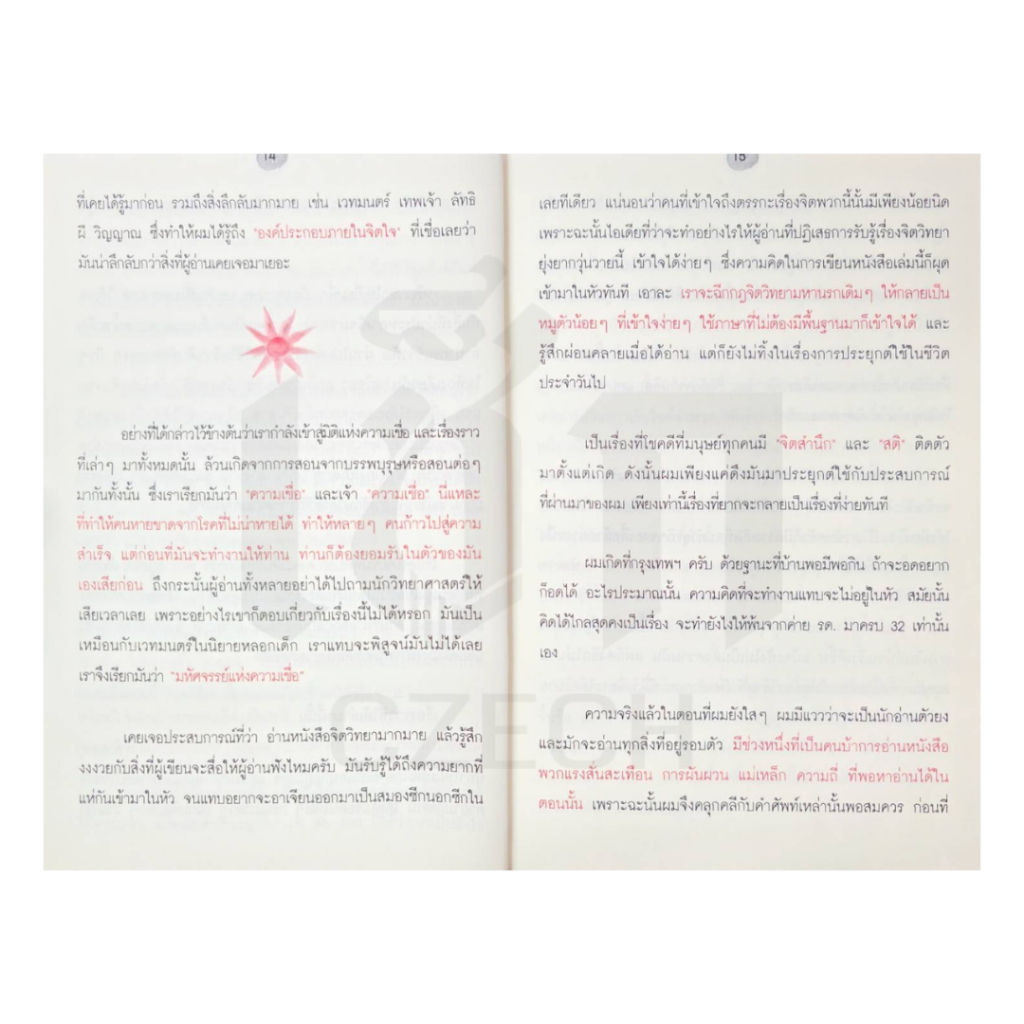 14
ที่เคยได้รู้มาก่อน รวมถึงสิ่งลึกลับมากมาย เช่น เวทมนตร์ เทพเจ้า ลัทธิ
ผี วิญญาณ ซึ่งทำให้ผมได้รู้ถึง "องค์ประกอบภายในจิตใจ" ที่เชื่อเลยว่า
มันน่าลึกลับกว่าสิ่งที่ผู้อ่านเคยเจอมาเยอะ
อย่างที่ได้กล่าวไว้ข้างต้นว่าเรากำลังเข้าสู่มิติแห่งความเชื่อ และเรื่องราว
ที่เล่าๆ มาทั้งหมดนั้น ล้วนเกิดจากการสอนจากบรรพบุรุษหรือสอนต่อๆ
มากันทั้งนั้น ซึ่งเราเรียกมันว่า "ความเชื่อ" และเจ้า "ความเชื่อ" นี่แหละ
ที่ทำให้คนหายขาดจากโรคที่ไม่น่าหายได้ ทำให้หลายๆ คนก้าวไปสู่ความ
สำเร็จ แต่ก่อนที่มันจะทำงานให้ท่าน ท่านก็ต้องยอมรับในตัวของมัน
เองเสียก่อน ถึงกระนั้นผู้อ่านทั้งหลายอย่าได้ไปถามนักวิทยาศาสตร์ให้
เสียเวลาเลย เพราะอย่างไรเขาก็ตอบเกี่ยวกับเรื่องนี้ไม่ได้หรอก มันเป็น
เหมือนกับเวทมนตร์ในนิยายหลอกเด็ก เราแทบจะพิสูจน์มันไม่ได้เลย
เราจึงเรียกมันว่า "มหัศจรรย์แห่งความเชื่อ"
เคยเจอประสบการณ์ที่ว่า อ่านหนังสือจิตวิทยามากมาย แล้วรู้สึก
งงงวยกับสิ่งที่ผู้เขียนจะสื่อให้ผู้อ่านฟังไหมครับ มันรับรู้ได้ถึงความยากที่
แห่กันเข้ามาในหัว จนแทบอยากจะอาเจียนออกมาเป็นสมองซีกนอกซีกใน
15
เลยทีเดียว แน่นอนว่าคนที่เข้าใจถึงตรรกะเรื่องจิตพวกนี้นั้นมีเพียงน้อยนิด
เพราะฉะนั้นไอเดียที่ว่าจะทำอย่างไรให้ผู้อ่านที่ปฏิเสธการรับรู้เรื่องจิตวิทยา
ยุ่งยากวุ่นวายนี้ เข้าใจได้ง่ายๆ ซึ่งความคิดในการเขียนหนังสือเล่มนี้ก็ผุด
เข้ามาในหัวทันที เอาละ เราจะฉีกกฎจิตวิทยามหานรกเดิมๆ ให้กลายเป็น
หมูตัวน้อยๆ ที่เข้าใจง่ายๆ ใช้ภาษาที่ไม่ต้องมีพื้นฐานมาก็เข้าใจได้ และ
รู้สึกผ่อนคลายเมื่อได้อ่าน แต่ก็ยังไม่ทิ้งในเรื่องการประยุกต์ใช้ในชีวิต
ประจำวันไป
เป็นเรื่องที่โชคดีที่มนุษย์ทุกคนมี "จิตสำนึก" และ "สติ" ติดตัว
มาตั้งแต่เกิด ดังนั้นผมเพียงแค่ดึงมันมาประยุกต์ใช้กับประสบการณ์
ที่ผ่านมาของผม เพียงเท่านี้เรื่องที่ยากจะกลายเป็นเรื่องที่ง่ายทันที
ผมเกิดที่กรุงเทพฯ ครับ ด้วยฐานะที่บ้านพอมีพอกิน ถ้าจะอดอยาก
ก็อดได้ อะไรประมาณนั้น ความคิดที่จะทำงานแทบจะไม่อยู่ในหัว สมัยนั้น
คิดได้ไกลสุดคงเป็นเรื่อง จะทำยังไงให้พ้นจากค่าย รด. มาครบ 32 เท่านั้น
เอง
ความจริงแล้วในตอนที่ผมยังใสๆ ผมมีแววว่าจะเป็นนักอ่านตัวยง
และมักจะอ่านทุกสิ่งที่อยู่รอบตัว มีช่วงหนึ่งที่เป็นคนบ้าการอ่านหนังสือ
พวกแรงสั่นสะเทือน การผันผวน แม่เหล็ก ความถี่ ที่พอหาอ่านได้ใน
ตอนนั้น เพราะฉะนั้นผมจึงคลุกคลีกับคำศัพท์เหล่านั้นพอสมควร ก่อนที่
เช็ก
CZECH